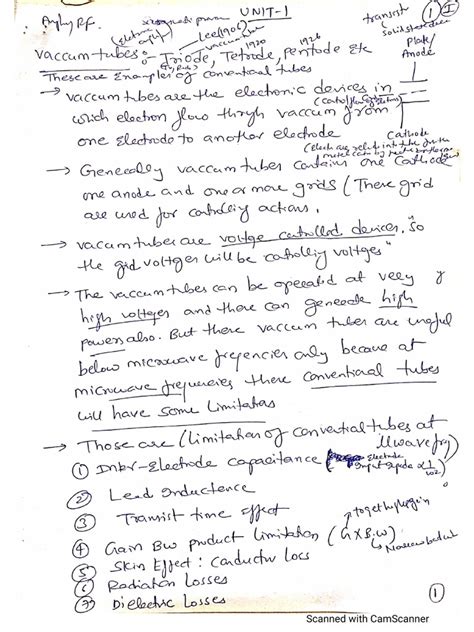 UNIT-1
Lee(1906)
transist
solid state device
vaccum tubes : Triode, Tetrode, Pentode Etc
1920 1926
Plate/
Anode
These are Examples of conventional tubes
→ vaccum tubes are the electronic devices in
which electron flow through vaccum from
one Electrode to another electrode
Cathode
→ Generally vaccum tubes contains one Cathode
one anode and one or more grids (These grid
are used for controlling actions,
→ vaccum tubes are voltage controlled devices, so
the grid voltages will be controlling voltges"
→ The vaccum tubes can be operated at very
high voltages and these can generate high
powers also. But these vaccum tubes are useful
below microwave freqencies only because at
microwave frequencies these conventional tubes
will have some limitations
→ Those are (limitation of convential tubes at
μwave frq)
① Inter-Electrode capacitance (
② Lead Inductence
③ Transist time effect
④ Gain Bw product limitation (G X B.W)
⑤ Skin Effect : Conductor Loss
⑥ Radiation Losses
⑦ Dielectric Losses
①
Scanned with CamScanner